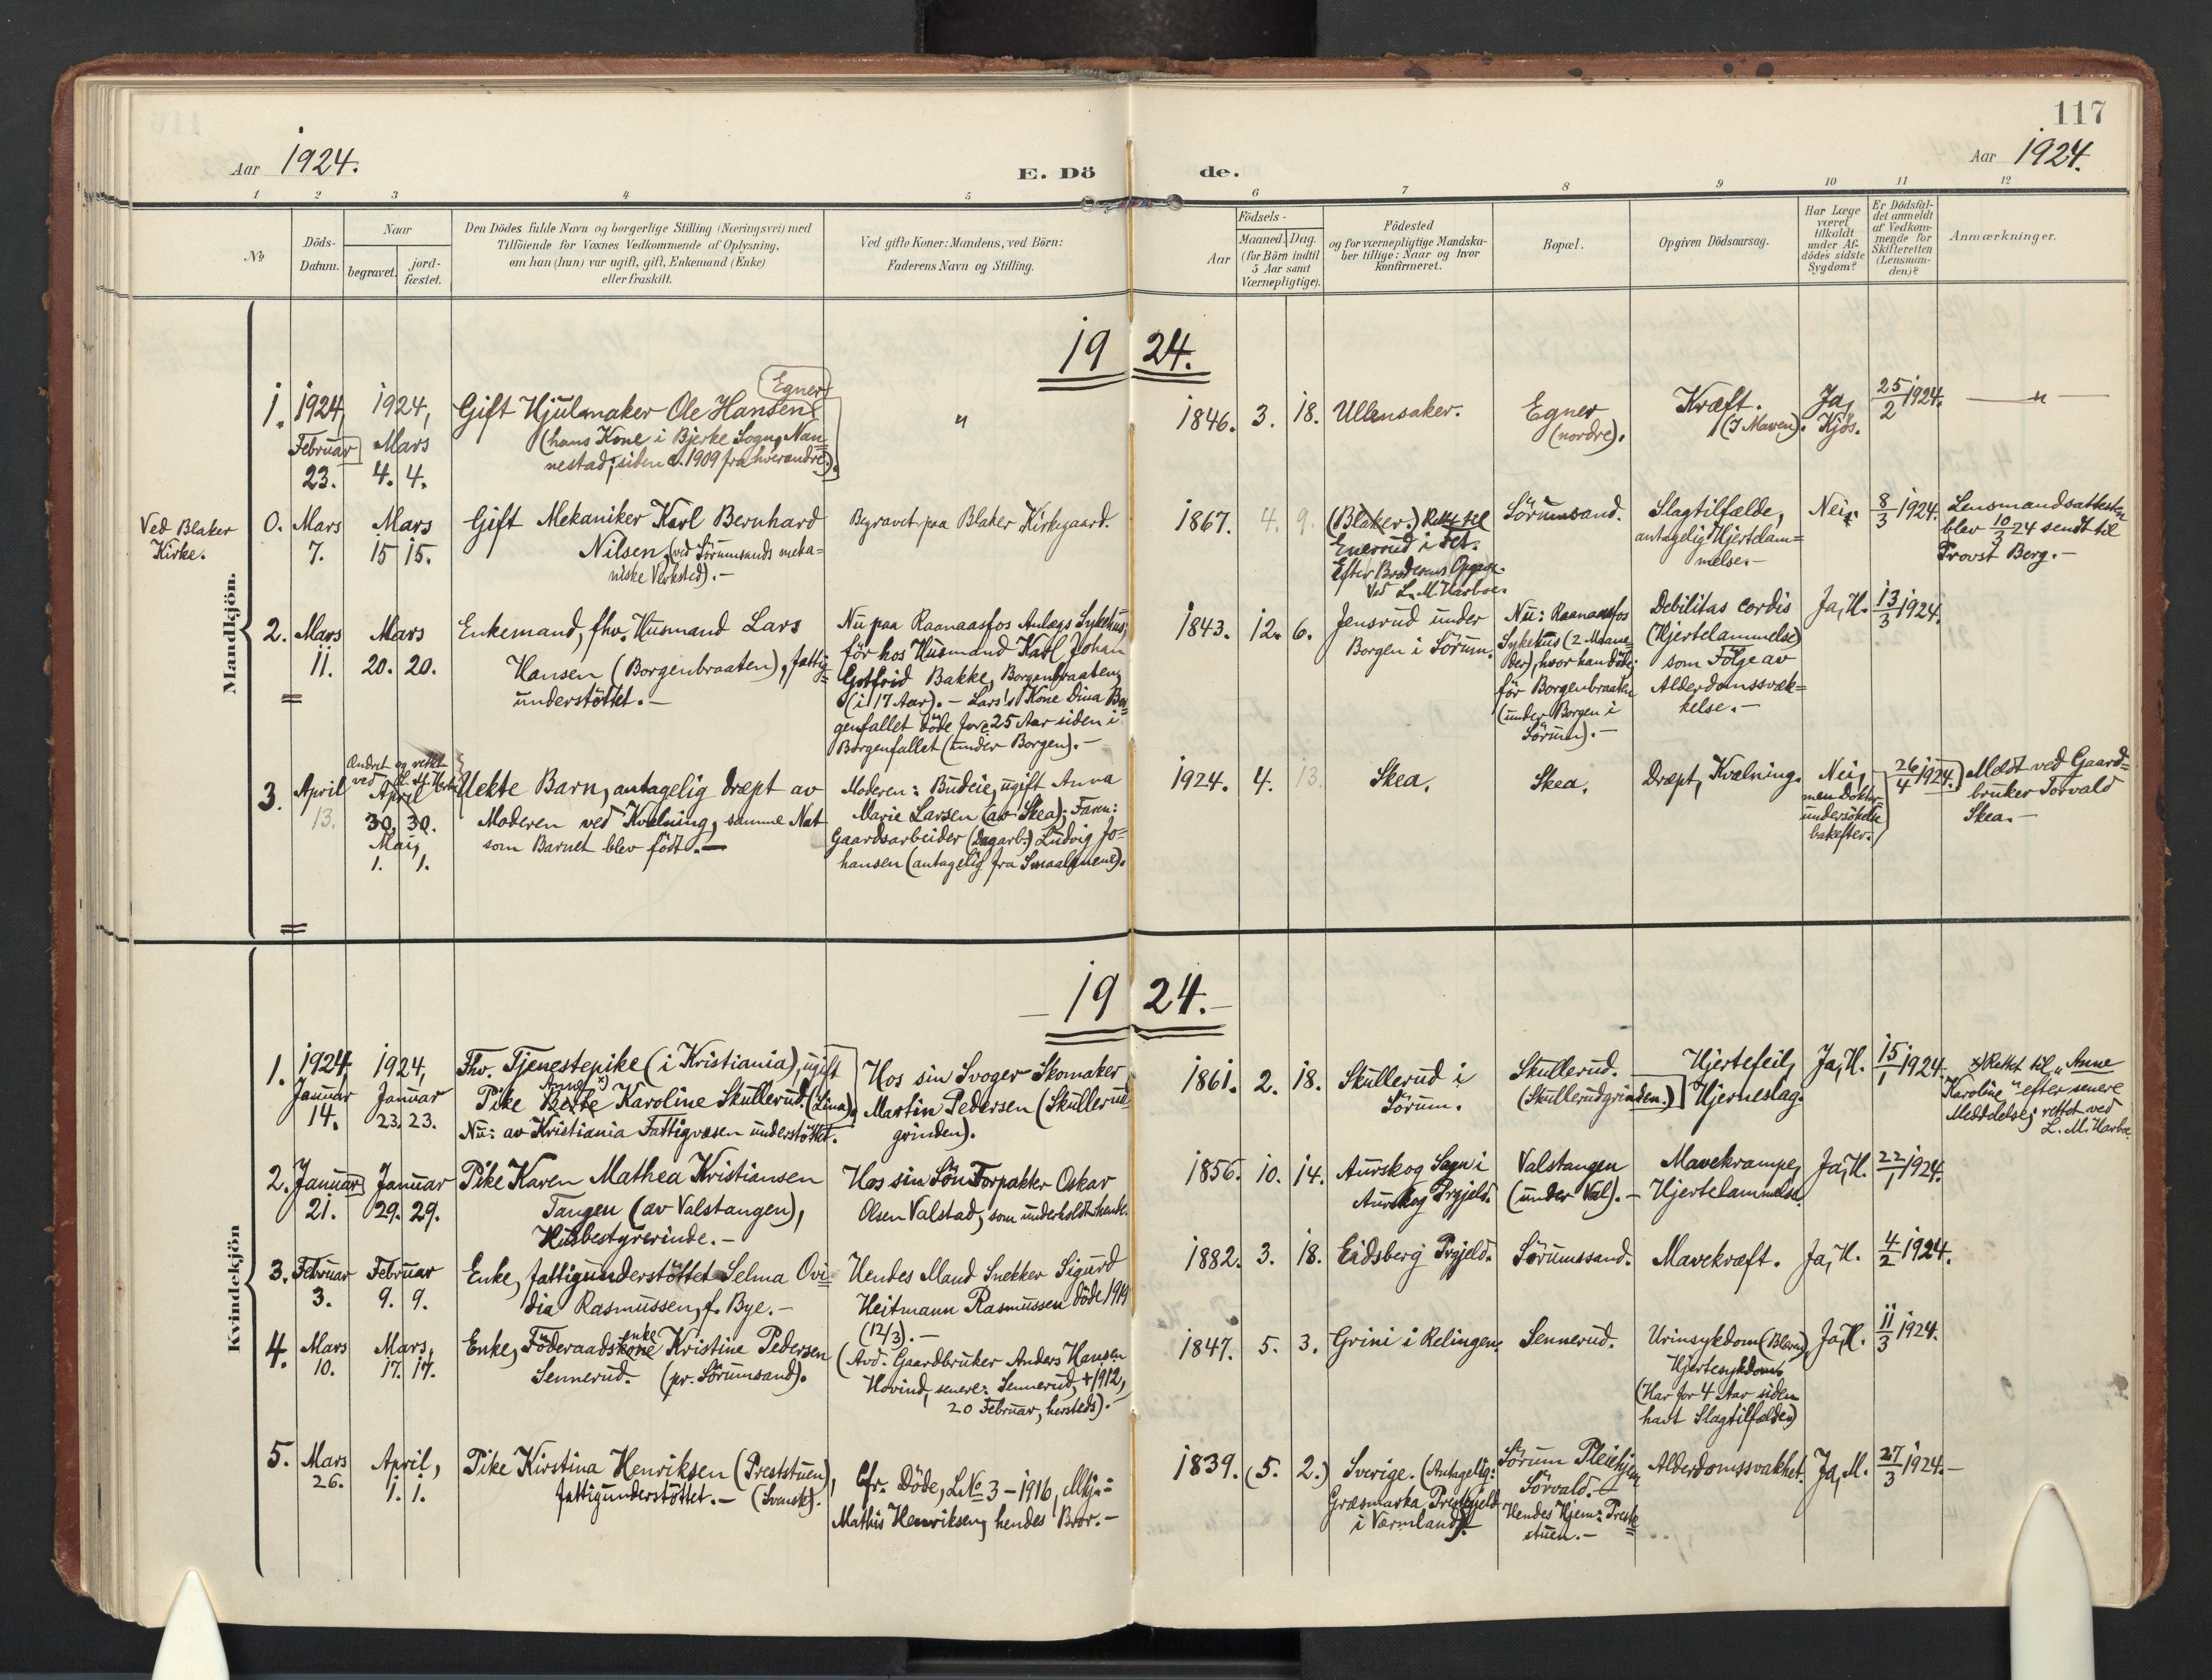 117
Aar 1924.
E. Dö de.
Aar 1924.
1 2 3 4 5 6 7 8 9 10 11 12
No
Döds-
Datum.
Naar
begravet.
jord-
fæstet.
Den Dödes fulde Navn og borgerlige Stilling (Næringsvei) med
Tilföiende for Voxnes Vedkommende af Oplysning,
om han (hun) var ugift, gift, Enkemand (Enke)
eller fraskilt.
Ved gifte Koner: Mandens, ved Börn:
Faderens Navn og Stilling.
Födsels-
Aar
Maaned. Dag.
(for Börn indtil
5 Aar samt
Værnepligtige).
Födested
og for værnepligtige Mandska-
ber tillige: Naar og hvor
konfirmeret.
Bopæl.
Opgiven Dödsaarsag.
Har Læge
været
tilkaldt
under Af-
dödes sidste
Sygdom?
Er Dödsfal-
det anmeldt
af Vedkom-
mende for
Skifteretten
(Lensman-
den)?
Anmærkninger.
Mandkjön.
1924.
1.
1924,
Februar
23.
1924,
Mars
4. 4.
Egner
Gift Hjulmaker Ole Hansen
(hans Kone i Bjerke Sogn, Nan=
nestad; siden c. 1909 fra hverandre.).
"
1846. 3. 18.
Ullensaker.
Egner
(nordre).
Kræft.
(I Maven).
Ja,
Kjös.
25/2 1924.
— " —
Ved Blaker
Kirke.
0.
Mars
7.
Mars
15 15.
Gift Mekaniker Karl Bernhard
Nilsen, (ved Sörumsands meka=
niske Verksted). —
Begravet paa Blaker Kirkegaard.
1867. 4. 9.
(Blaker.) Rettet til
Enerud i Fet.
Efter Broderens Opgave.
Ved L. M. Harboe.
Sörumsand.
Slagtilfælde,
antagelig Hjertelam=
melse. —
Nei.
8/3 1924.
Lensmandsattesten
blev 10/3 24 sendt til
Provst Berg. —
2.
Mars
11.
Mars
20. 20.
Enkemand, fhv. Husmand Lars
Hansen (Borgenbraaten), fattig=
understöttet. —
Nu paa Raanaasfos Anlægs Sykehus,
för hos Husmand Karl Johan
Gotfrid Bakke, Borgenbraaten,
(i 17 Aar). — Lars's Kone Dina Bor=
genfallet döde for c. 25 Aar siden i
Borgenfallet (under Borgen). —
1843. 12. 6.
Jensrud under
Borgen i Sörum.
Nu: Raanaasfos
Sykehus (2 Maane=
der), hvor han döde;
för Borgenbraaten
(under Borgen i
Sörum). —
Debilitas cordis
(Hjertelammelse)
som Fölge av
Alderdomssvæk=
kelse. —
Ja, H.
13/3 1924.
3.
April
13.
Ændret og rettet
ved L. M. Harboe
April
30. 30.
Mai,
1. 1.
Uekte Barn, antagelig dræpt av
Moderen ved Kvælning, samme Nat
som Barnet blev födt. —
Moderen: Budeie, ugift Anna
Marie Larsen (av Skea); Faren:
Gaardsarbeider (Dagarb.) Ludvig Jo=
hansen (antagelig fra Smaalenene).
1924. 4. 13.
Skea.
Skea.
Dræpt, Kvælning.
Nei,
men Doktor-
undersökelse
bakefter.
26/4 1924.
Meldt ved Gaard=
bruker Torvald
Skea. —
Kvindekjön
— 1924. —
1.
1924,
Januar
14.
1924,
Januar
23. 23.
Fhv. Tjenestepike (i Kristiania), ugift
Anne x)
Pike Berte Karoline Skullerud. (Lina),
Nu: av Kristiania Fattigvæsen understöttet.
Hos sin Svoger Skomaker
Martin Pedersen (Skullerud=
grinden).
1861. 2. 18.
Skullerud i
Sörum.
Skullerud.
(Skullerudgrinden.)
Hjertefeil,
Hjerneslag.
Ja, H.
15/1 1924.
x) Rettet til „Anne
Karoline" efter senere
Meddelse; rettet ved
L. M. Harboe.
2.
Januar
21.
Januar
29. 29.
Pike Karen Mathea Kristiansen
Tangen (av Valstangen),
Husbestyrerinde. —
Hos sin Sön Forpakter Oskar
Olsen Valstad, som underholdt hende.
1856. 10. 14.
Aurskog Sogn i
Aurskog Prgjeld.
Valstangen
(under Val). —
Mavekrampe,
Hjertelammelse.
Ja, H.
22/1 1924.
3.
Februar
3.
Februar
9. 9.
Enke, fattigunderstöttet Selma Ovi=
dia Rasmussen, f. Bye. —
Hendes Mand Snekker Sigurd
Heitmann Rasmussen döde 1919
(12/3). —
1882. 3. 18.
Eidsberg Prgjeld.
Sörumssand.
Mavekræft.
Ja, H.
4/2 1924.
4.
Mars
10.
Mars,
17. 17.
enke
Enke, Föderaadskone Kristine Pedersen
Sennerud. (pr. Sörumsand).
(Avd. Gaardbruker Anders Hansen
Hovind, senere: Sennerud, + 1912,
20 Februar, hersteds). —
1847. 5. 3.
Grini i Relingen.
Sennerud.
Urinsykdom (Blære),
Hjertesykdom
(Har for 4 Aar siden
hadt Slagtilfælde)
Ja, H.
11/3 1924.
5.
Mars
26.
April,
1. 1.
Pike Kirstina Henriksen (Preststuen),
fattigunderstöttet. — (Svensk).
Cfr. Döde, L. No 3 – 1916, Mkj.:
Mathis Henriksen, hendes Bror. —
1839. (5. 2.)
Sverige. (Antagelig:
Græsmarka Prestegjeld
i Værmland). —
Sörum Pleiehjem
Sörvald. —
Hendes Hjem: Prest=
stuen. —
Alderdomssvakhet.
Ja, M.
27/3 1924. —